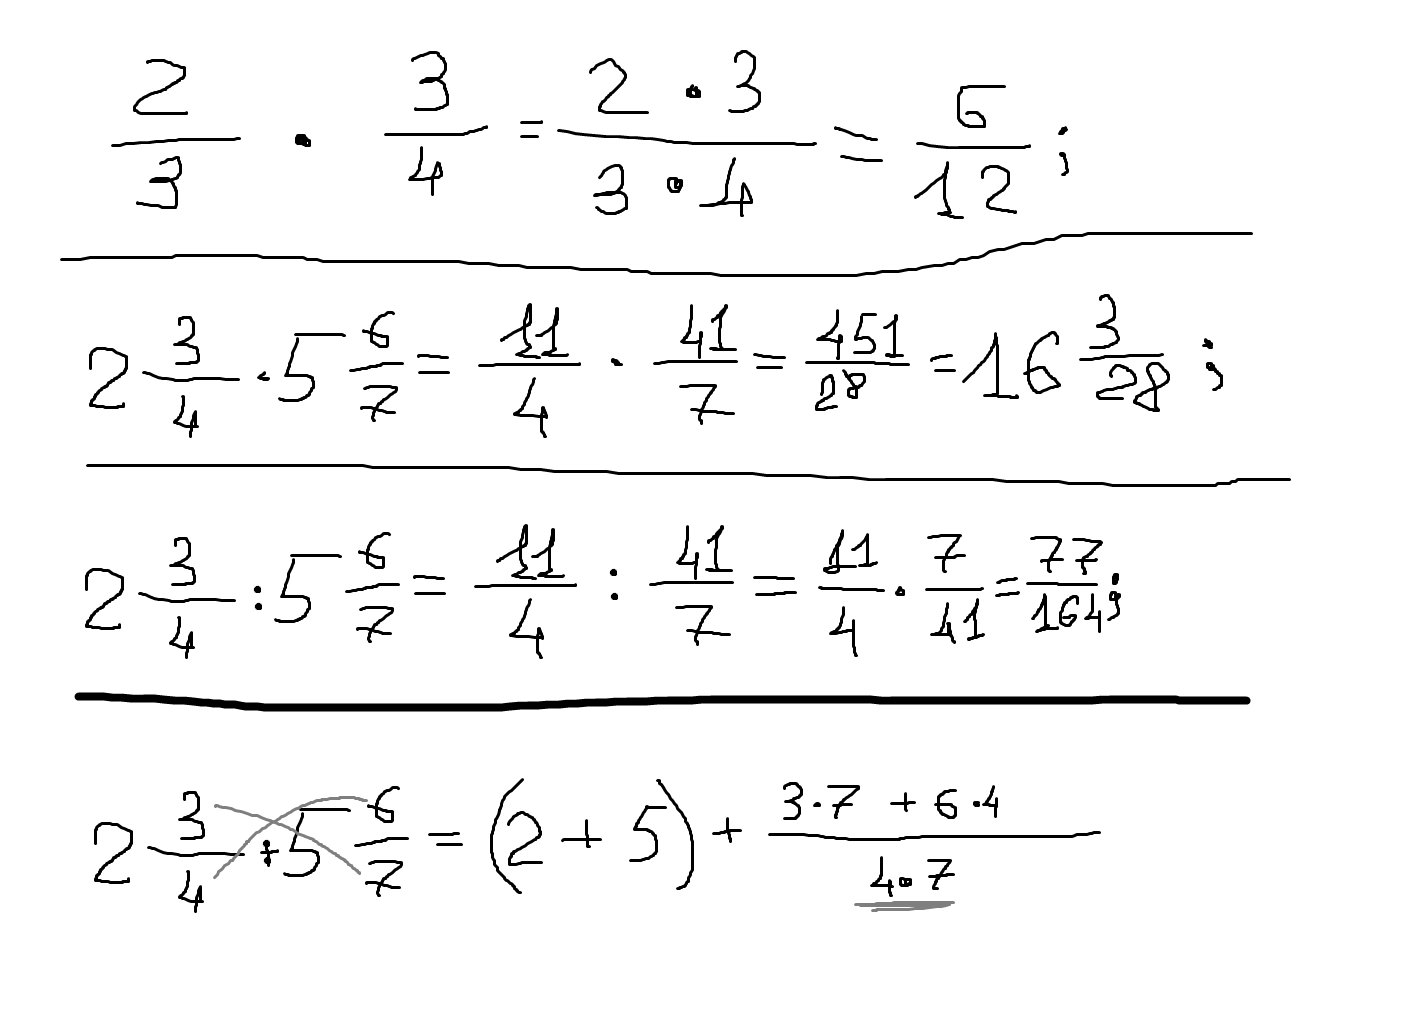 2/3 · 3/4 = 2 · 3/3 · 4 = 6/12 ;
2 3/4 · 5 6/7 = 11/4 · 41/7 = 451/28 = 16 3/28 ;
2 3/4 : 5 6/7 = 11/4 : 41/7 = 11/4 · 7/41 = 77/164 ;
2 3/4 + 5 6/7 = (2 + 5) + 3·7 + 6·4/4·7